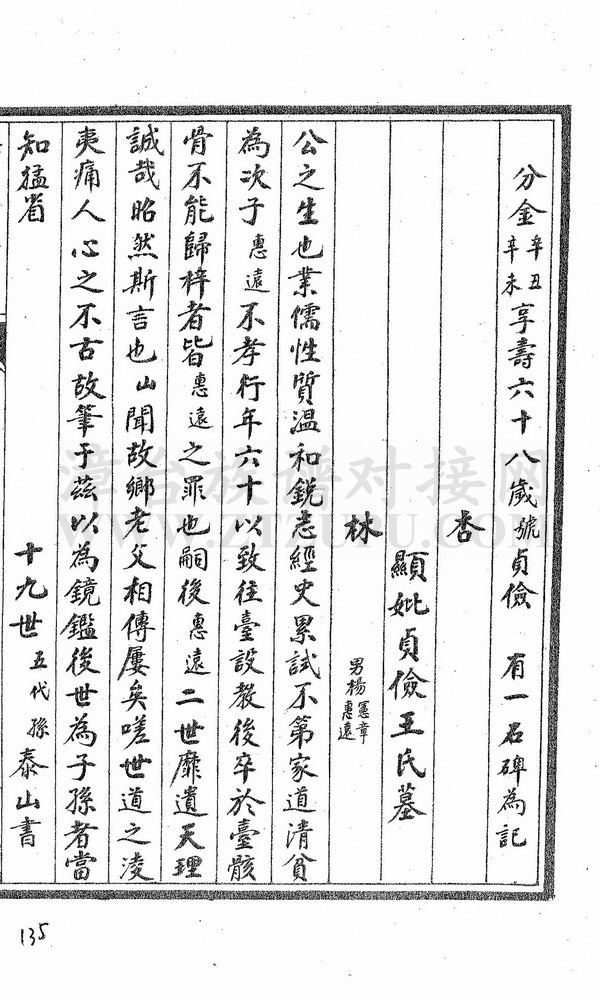 分金辛丑辛未享壽六十八歲號貞儉 有一石碑為記
杏
顯妣貞儉王氏墓
林
男楊憲章惠遠
公之生也業儒性質溫和銳志經史累試不第家道清貧
為次子惠遠不孝行年六十以致往臺設教後卒於臺骸
骨不能歸梓者皆惠遠之罪也嗣後惠遠二世靡遺天理
誠哉昭然斯言也山聞故鄉老父相傳屢矣嗟世道之凌
夷痛人心之不古故筆于茲以為鏡鑑後世為子孫者當
知猛省
十九世五代孫泰山書
135
漳台族谱对接网
WWW.ZTZUPU.COM